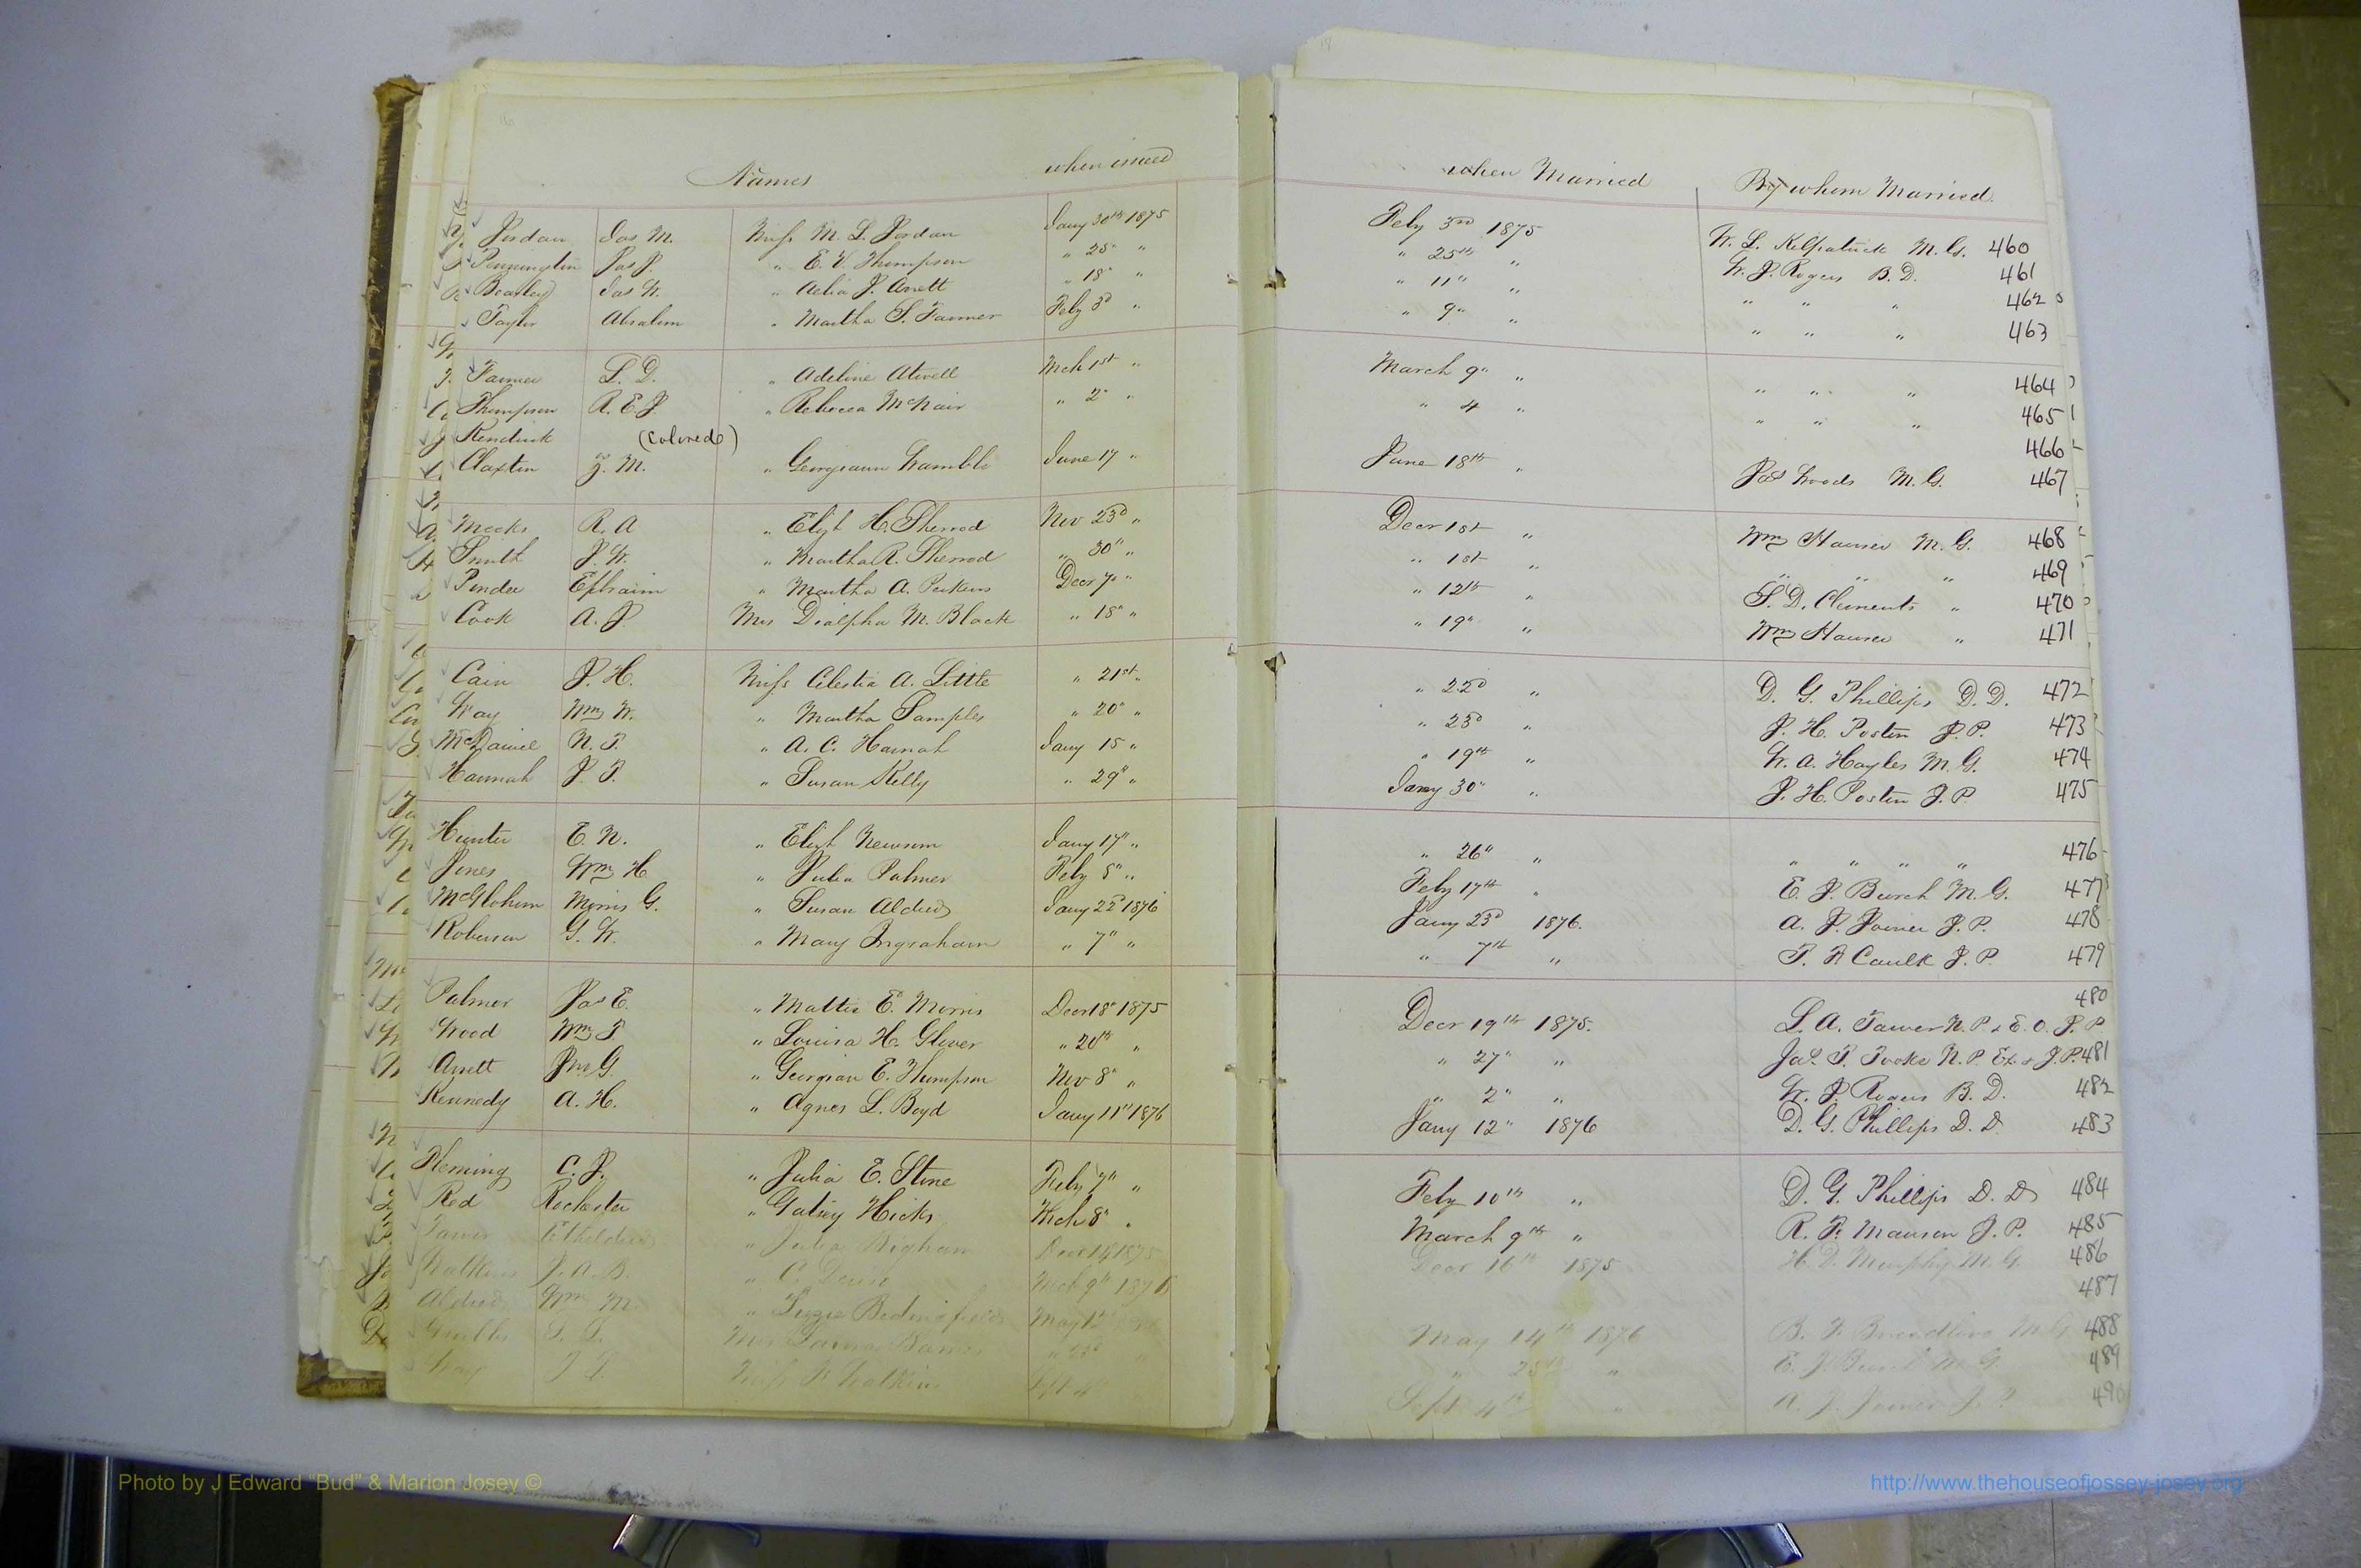 Names when issued when Married By whom Married
Jordan Jas M. Miss M. L. Jordan Jany 30th 1875 Feby 3rd 1875 W. L. Kilpatrick M. G. 460
Jas J. " E. V. Thompson " 25" " " 25th " W. J. Rogers B. D. 461
Beasley Jas W. " Aelia J. Arrett " 18" " " 11" " " " " 462
Taylor Absalom " Martha S. Farmer Feby 3d " " 9" " " " " 463
Farmer L. D. " Adeline Atwell Mch 1st " March 9" " " " " 464
Thompson R. E. J. " Rebecca McNair " 2" " " 4 " " " " 465
Kendrick (Colored) 466
Claxton J. M. " Georgiann Gamble June 17 " June 18th " Jas Woods M. G. 467
Meeks R. A " Elizt H. Sherrod Nov 23d " Decr 1st " Wm Hauser M. G. 468
Smith J. W. " Martha R. Sherrod " 30" " " 1st " " " " 469
Pender Ephraim " Martha A. Perkins Decr 7" " " 12th " S. D. Clements " 470
Cook A. J. Mrs Dialpha M. Black " 18" " " 19" " Wm Hauser " 471
Cain J. H. Miss Celestia A. Little " 21st " " 22d " D. G. Phillips D. D. 472
Way Wm W. " Martha Samples " 20" " " 23d " J. H. Postin J. P. 473
McDaniel N. T. " A. C. Hannah Jany 15 " " 19th " W. A. Hayles M. G. 474
Hannah J. T. " Susan Kelly " 29" " Jany 30" " J. H. Postin J. P. 475
Hunter E. N. " Elizt Newsom Jany 17" " " 26" " " " " " 476
Jones Wm H " Julia Palmer Feby 8" " Feby 17th " E. J. Burch M. G. 477
Morris G. " Susan Aldred Jany 22d 1876 Jany 23d 1876. A. J. Joiner J. P. 478
Roberson G. W. " Mary Ingraham " 7" " " 7th " T. R Caulk J. P. 479
Palmer Jas E. " Mattie E. Morris Decr 18" 1875 Decr 19th 1875. L. A. Farmer N. P. & E. O. J. P. 480
Wood Wm T " Louisa H. Glover " 20th " " 27" " Jas. T. Tooke N. P. Ex. o J. P. 481
Arrett Jno G. " Georgian E. Thompson Nov 8" " " 2" " W. J. Rogers B. D. 482
Kennedy A. H. " Agnes L. Boyd Jany 11" 1876 Jany 12" 1876 D. G. Phillips D. D. 483
Fleming C. J. " Julia E. Stone Feby 7" " Feby 10th " D. G. Phillips D. D. 484
Red Rochester " Gatsey Hicks Mch 8" " March 9th " R. F. Manson J. P. 485
Etheldred " Julia Bigham Decr 14 1875 Decr 16th 1875 H. D. Murphy M. G. 486
Watkins J. A. B. " C. Mch 9" 1876 487
Aldred Wm M. " Lizzie Bedingfield May 12 May 14th 1876 B. F. M G 488
Gamble Mrs Barnes " " " E. J. Burch M. G. 489
Way Miss Watkins Sept 4" Sept 4th " A. J. Joiner J. P. 490
Photo by J Edward "Bud" & Marion Josey ©
http://www.thehouseofjossey-josey.org